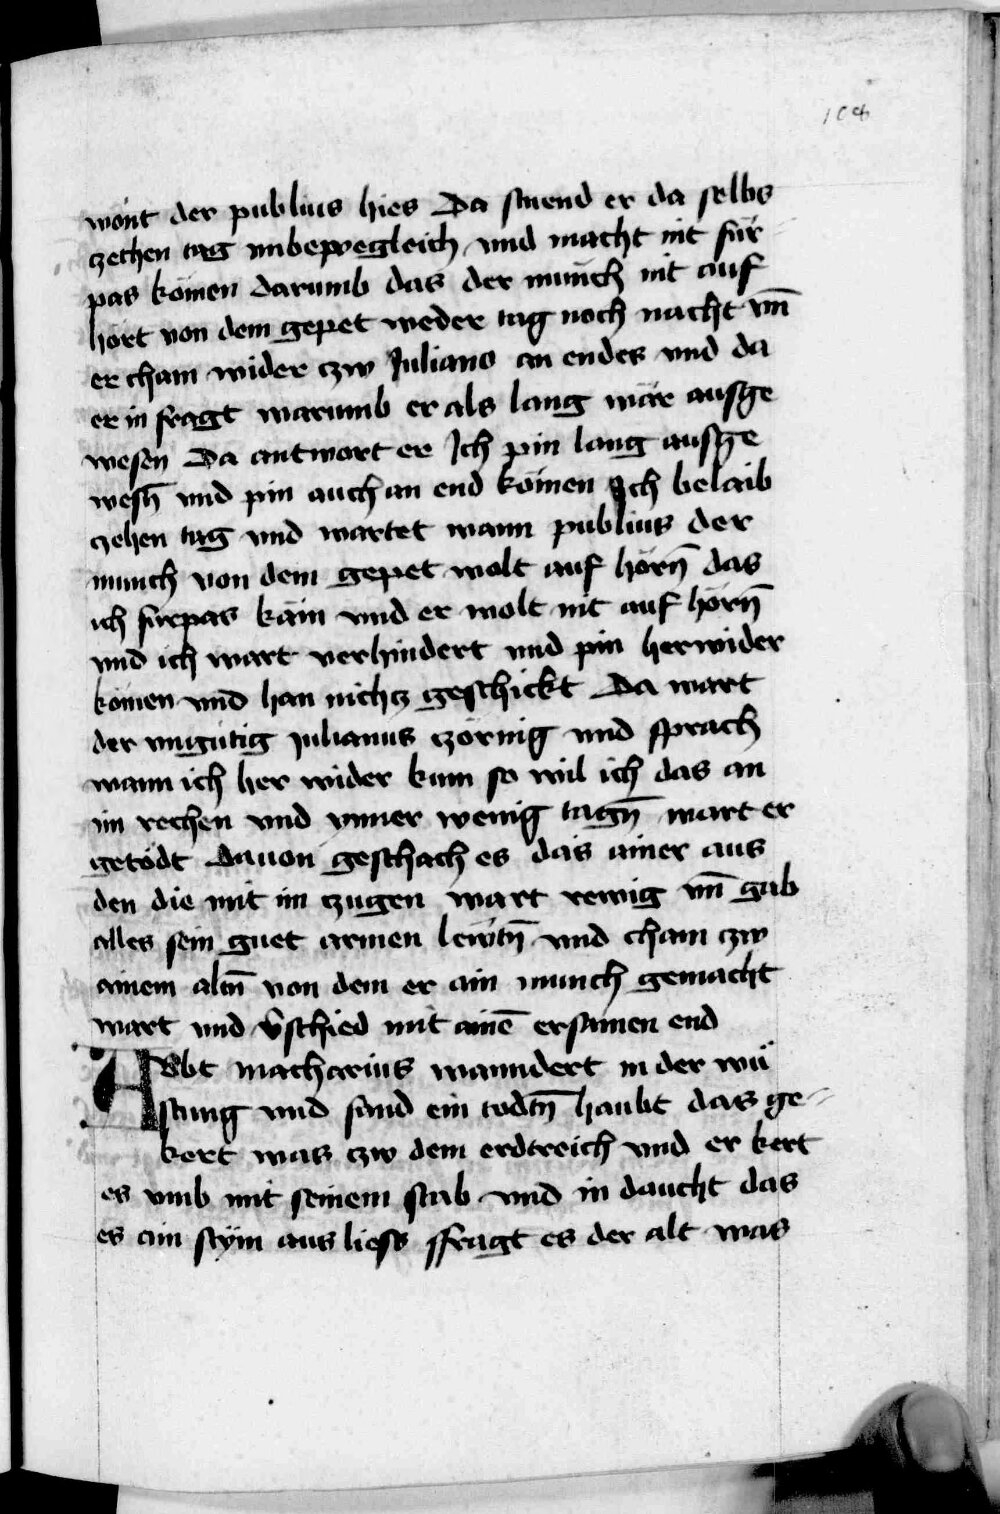 108
wont der publius hies Da stuend er da selbs
zechen tag unbewegleich und macht nit für
pas kömen darumb das der münch nit auf
hört von dem gepet weder tag noch nacht vn̄
er cham wider czw Juliano an endes und da
er in fragt warumb er als lang wär ausge
wesen Da antwort er Ich pin lang ausge
wesn̄ und pin auch an end kömen Ich belaib
zehen tag und wartet wann publius der
munch von dem gepet wolt auf hörn̄ das
ich fürpas käm und er wolt nit auf hörn̄
und ich wart verhindert und pin herwider
kömen und han nichcz geschickt Da wart
der ungütig julianus zörnig und sprach
wann ich her wider kum so wil ich das an
im rechen und ynner wenig tagn̄ wart er
getödt Davon geschach es das ainer aus
den die mit im czugen wart rewig vn̄ gab
alles sein guet armen lewtn̄ und cham czw
ainem altn̄ von dem er ain munch gemacht
wart und v̄schied mit ainē ersamen end
Abbt macharius wanndert in der wü
stung und fand ein todtn̄ haubt das ge-
kert was czw dem erdtreich und er kert
es umb mit seinem stab und in daucht das
es ain stym aus liess ffragt es der alt was